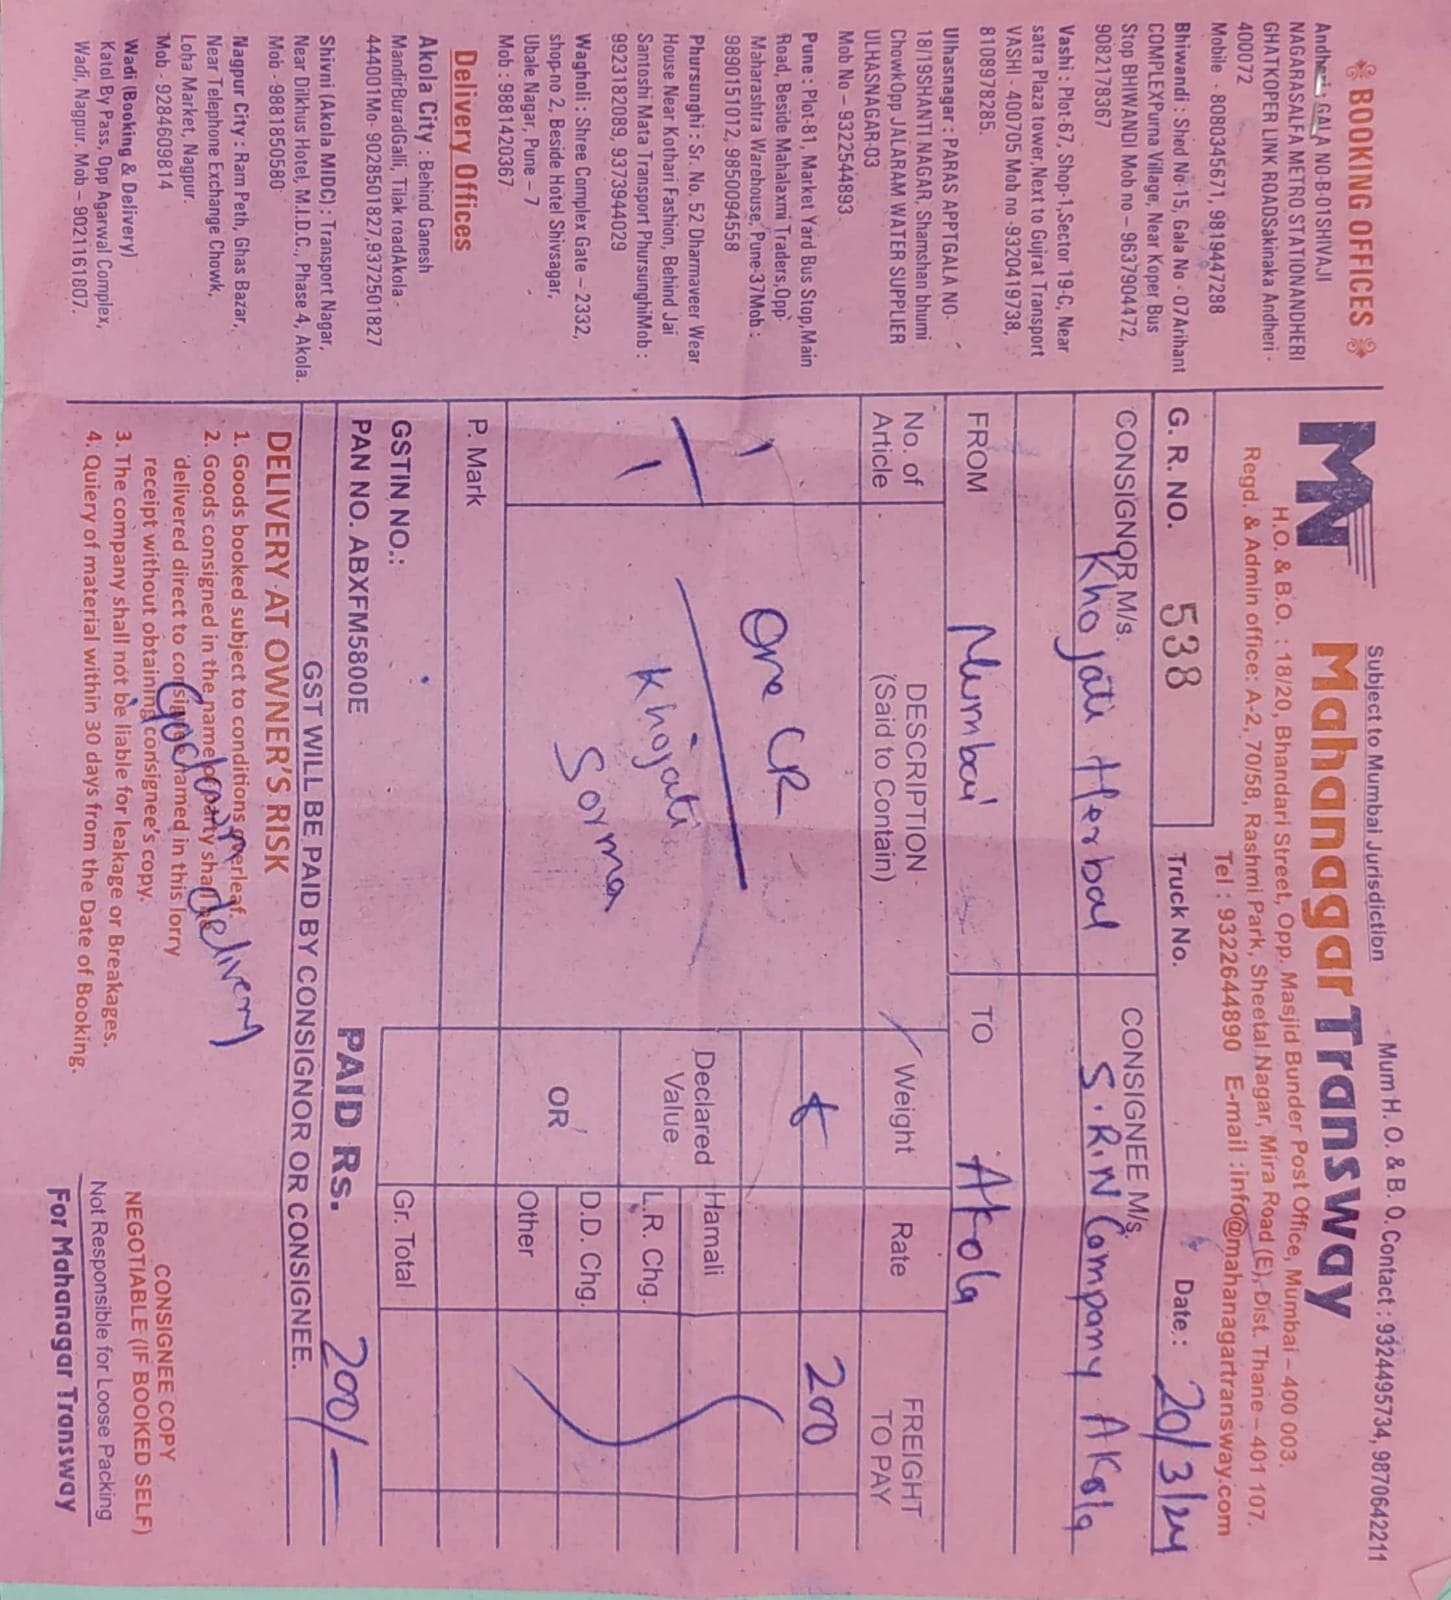 Subject to Mumbai Jurisdiction
Mum H. O. & B. O. Contact : 9324495734, 9870642211
Mahanagar Transway
H.O. & B.O. : 18/20, Bhandari Street, Opp. Masjid Bunder Post Office, Mumbai – 400 003.
Regd. & Admin office: A-2, 70/58, Rashmi Park, Sheetal Nagar, Mira Road (E), Dist. Thane – 401 107.
Tel : 9322644890 E-mail :info@mahanagartransway.com
BOOKING OFFICES
Andheri : GALA NO-B-01SHIVAJI
NAGARASALFA METRO STATIONANDHERI
GHATKOPER LINK ROADSakinaka Andheri -
400072
Mobile - 8080345671, 9819447288
Bhiwandi : Shed No-15, Gala No - 07Arihant
COMPLEXPurna Village, Near Koper Bus
Stop BHIWANDI Mob no – 9637904472,
9082178367
Vashi : Plot-67, Shop-1,Sector 19-C, Near
satra Plaza tower,Next to Gujrat Transport
VASHI - 400705 Mob no -9320419738,
8108978285.
Ulhasnagar : PARAS APPTGALA NO-
18/19SHANTI NAGAR, Shamshan bhumi
ChowkOpp JALARAM WATER SUPPLIER
ULHASNAGAR-03
Mob No – 9322544893
Pune : Plot-81, Market Yard Bus Stop,Main
Road, Beside Mahalaxmi Traders,Opp
Maharashtra Warehouse, Pune-37Mob :
9890151012, 9850094558
Phursunghi : Sr. No. 52 Dharmaveer Wear
House Near Kothari Fashion, Behind Jai
Santoshi Mata Transport PhursunghiMob :
9923182089, 9373944029
Wagholi : Shree Complex Gate – 2332,
shop-no 2, Beside Hotel Shivsagar,
Ubale Nagar, Pune – 7
Mob : 9881420367
Delivery Offices
Akola City : Behind Ganesh
MandirBuradGalli, Tilak roadAkola -
444001Mo- 9028501827,9372501827
Shivni (Akola MIDC) : Transport Nagar,
Near Dilkhus Hotel, M.I.D.C., Phase 4, Akola.
Mob - 9881850580
Nagpur City : Ram Peth, Ghas Bazar,
Near Telephone Exchange Chowk,
Loha Market, Nagpur.
Mob - 9284609814
Wadi (Booking & Delivery)
Katol By Pass, Opp Agarwal Complex,
Wadi, Nagpur. Mob – 9021161807.
G. R. NO. 538 Truck No. Date : 20/3/24
CONSIGNOR M/s. CONSIGNEE M/s.
Khojati Herbal S.R.N Company Akola
FROM Mumbai TO Akola
No. of Article DESCRIPTION (Said to Contain) Weight Rate FREIGHT TO PAY
1 One CR 200
1 Khojati
Sorma
Declared Value Hamali
L.R. Chg.
OR D.D. Chg.
Other
P. Mark
Gr. Total
GSTIN NO.:
PAN NO. ABXFM5800E PAID Rs. 200/-
GST WILL BE PAID BY CONSIGNOR OR CONSIGNEE.
DELIVERY AT OWNER'S RISK
1. Goods booked subject to conditions overleaf.
2. Goods consigned in the name of party shall
delivered direct to consignee named in this lorry
receipt without obtaining consignee's copy.
3. The company shall not be liable for leakage or Breakages.
4. Quiery of material within 30 days from the Date of Booking.
Godown delivery
CONSIGNEE COPY
NEGOTIABLE (IF BOOKED SELF)
Not Responsible for Loose Packing
For Mahanagar Transway